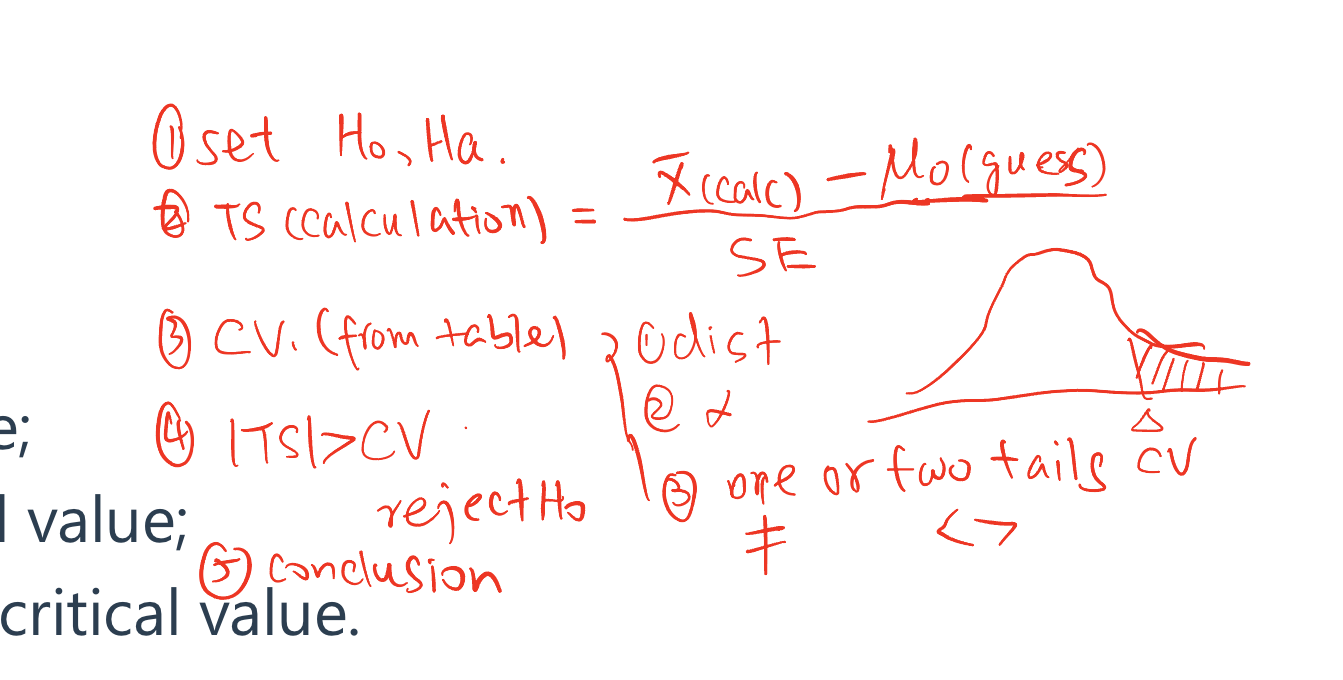 ① set Ho, Ha.
② TS (calculation) = x̄(calc) − μo(guess)
SE
③ CV. (from table) ① dist
② α
④ |TS|>CV
reject Ho
③ one or two tails
CV
≠ < >
⑤ conclusion
e;
l value;
critical value.